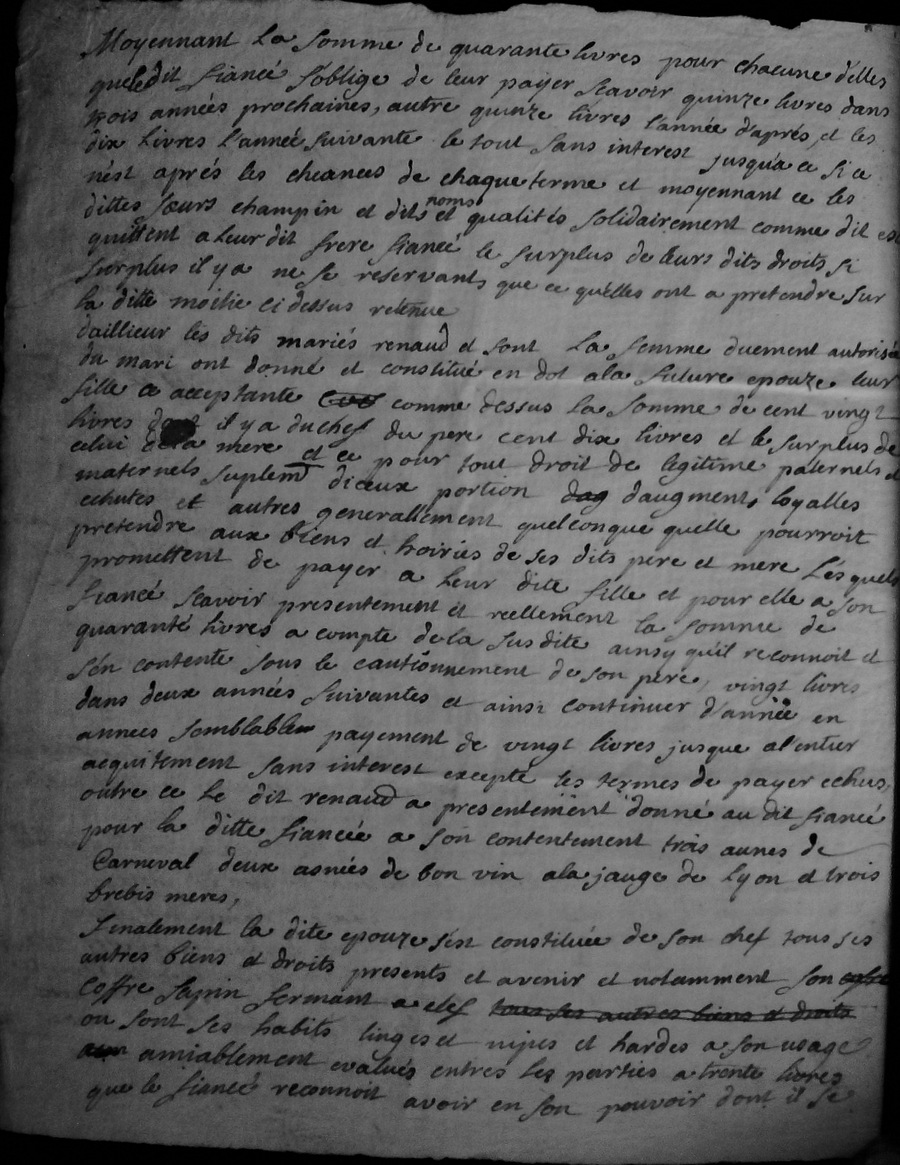 Moyennant la somme de quarante livres pour chacune d'elles
que ledit fiancé s'oblige de leur payer scavoir quinze livres dans
trois années prochaines, autre quinze livres l'année d'aprés, et les
dix livres l'année suivante le tout sans interest jusqu'a ce si ce
n'est aprés les cheances de chaque terme et moyennant ce les
dittes sœurs champin et dits noms et qualités solidairement comme dit est
quittent a leur dit frere fiancé le surplus de leurs dits droits si
surplus il y a ne se reservants que ce qu'elles ont a pretendre sur
la ditte moitié ci dessus retenue
dailleur les dits mariés renaud et sont la femme duement autorisée
du mari ont donné et constitué en dot a la future epouze leur
fille ce acceptante comme dessus la somme de cent vingt
livres dont il y a du chef du pere cent dix livres et le surplus de
celui de la mere et ce pour tout droit de legitime paternels et
maternels suplemt diceux portion daugments loyalles
echutes et autres generallement quelconque quelle pourroit
pretendre aux biens et hoiries de ses dits pere et mere Lesquels
promettent de payer a leur dite fille et pour elle a son
fiancé scavoir presentement et reellement la somme de
quarante livres a compte de la susdite ainsy qu'il reconnoit et
s'en contente sous le cautionnement de son pere, vingt livres
dans deux années suivantes et ainsi continuer d'année en
annees semblables payement de vingt livres jusque a l'entier
acquitement sans interest excepté les termes de payer echus,
outre ce le dit renaud a presentement donné au dit fiancé
pour la ditte fiancée a son contentement trois aunes de
Carneval deux asnées de bon vin a la jauge de Lyon et trois
brebis meres,
Finalement la dite epouze s'est constituée de son chef tous ses
autres biens et droits presents et avenir et notamment son coffre
Coffre sapin fermant a clef tous ses autres biens et droits
ou sont ses habits linges et nipes et hardes a son usage
amiablement evalués entres les parties a trente livres
que le fiancé reconnoit avoir en son pouvoir dont il se